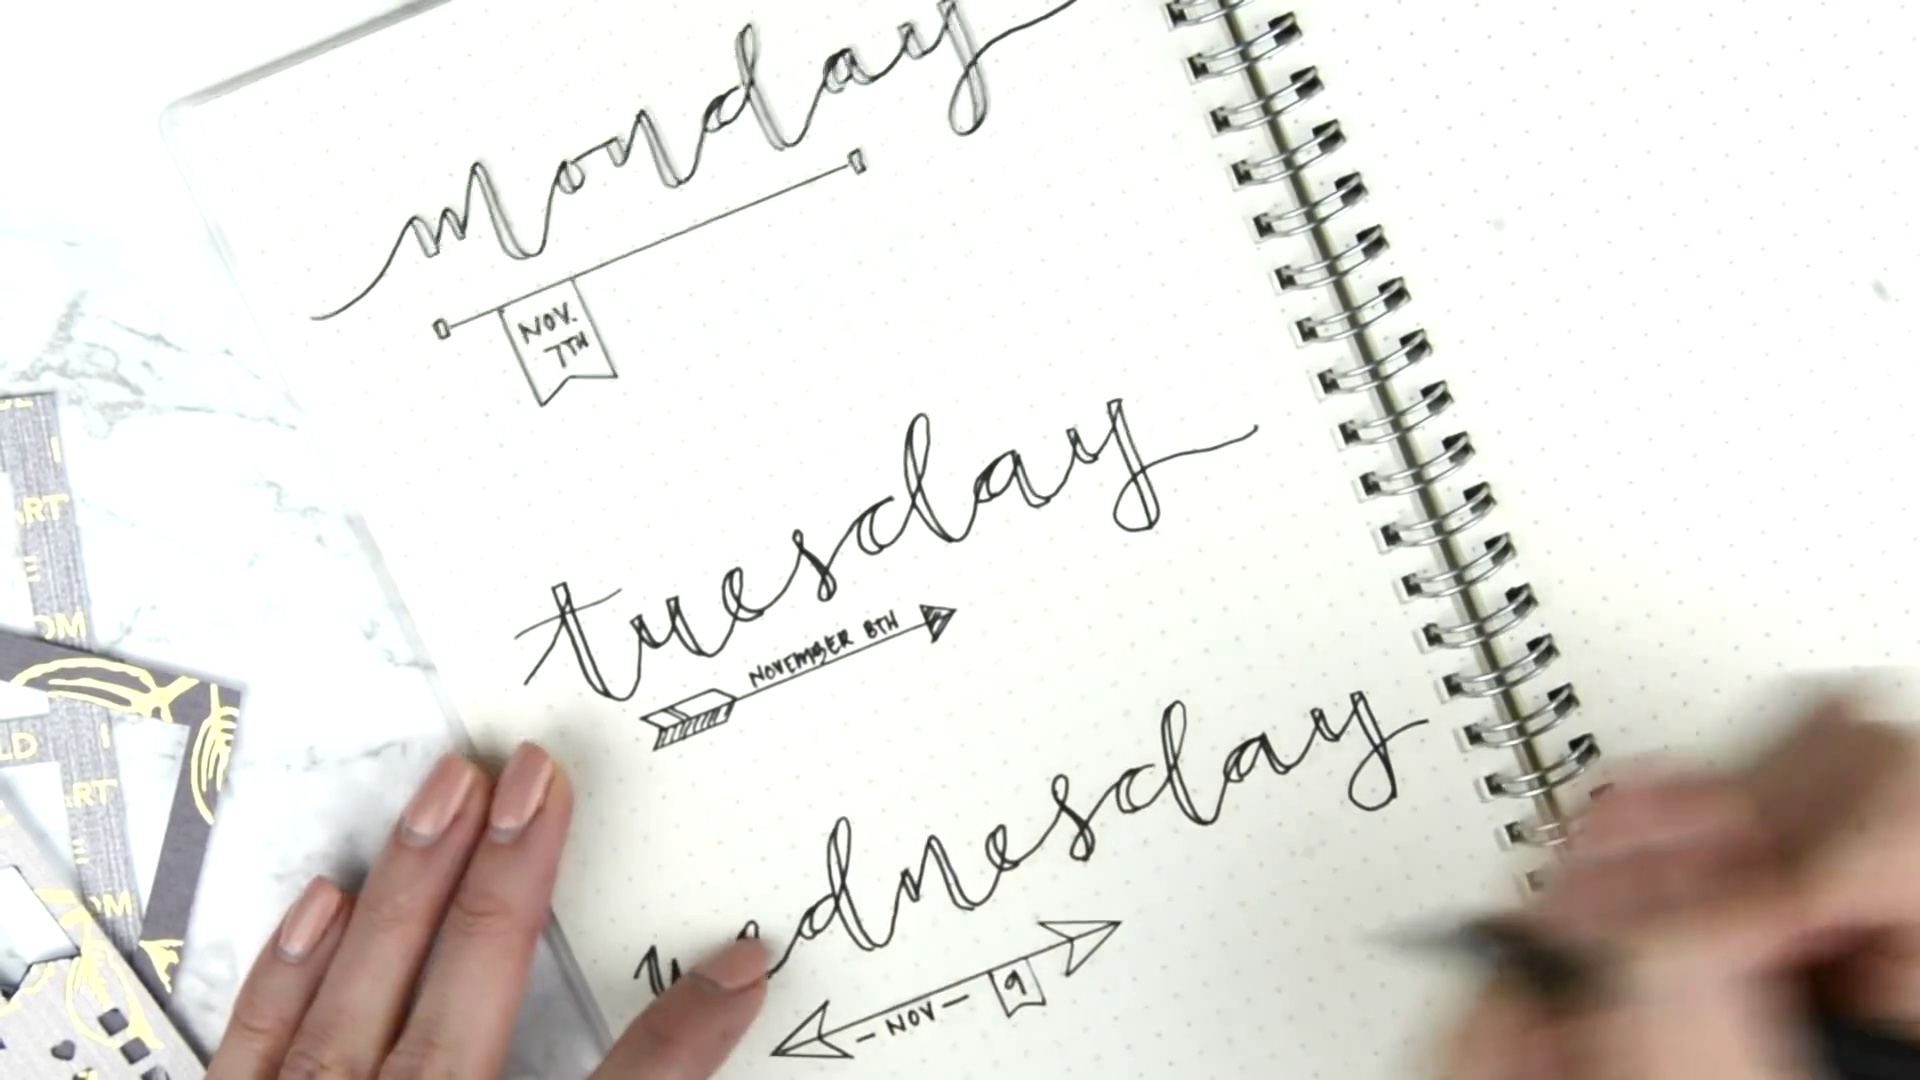 monday
NOV.
7TH
tuesday
NOVEMBER 8TH
wednesday
- NOV - 9
I
ART
E
OM
LD I
ART
E
OM